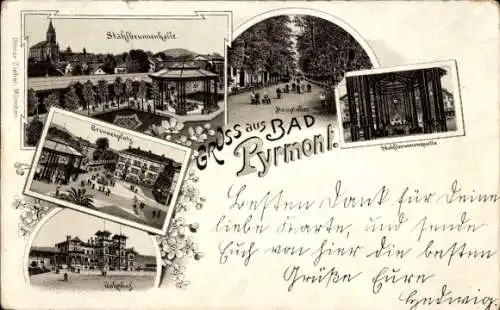 Stahlbrunnenhalle
Hauptallee
Gruss aus BAD
Pyrmont.
Stahlbrunnenquelle
Brunnenplatz
Bahnhof
Ottmar Zieher, München.
Besten Dank für Deine
liebe Karte, und sende
Euch von hier die besten
Grüße Eure
Hedwig.